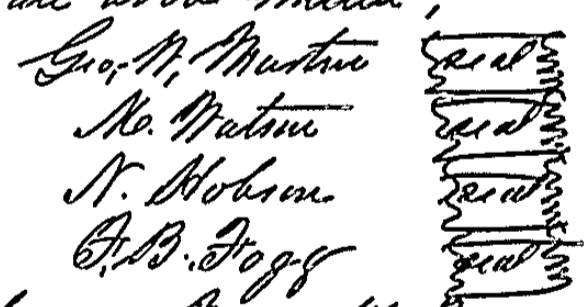 are above
Geo, W, Martin seal
M. Watson seal
N. Hobson seal
F. B. Fogg seal